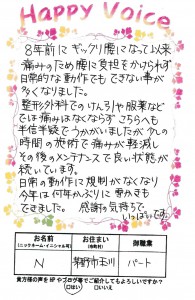 Happy Voice
8年前にギックリ腰になって以来
痛みのため腰に負担をかけられず
日常的な動作でもできない事が
多くなりました。
整形外科でのけん引や服薬など
では痛みはなくならずこちらへも
半信半疑でうかがいましたが少しの
時間の施術で痛みが軽減し
その後のメンテナンスで良い状態が
続いています。
日常の動作に規制がなくなり
今年は何年かぶりに
できました。感謝の気持ちで
いっぱいです。
お名前
(ニックネーム・イニシャル可)
お住まい
(市町村)
御職業
N
茅野市玉川
パート
貴方様の声をHPやブログ等でご紹介してもよろしいですか?
□はい □いいえ